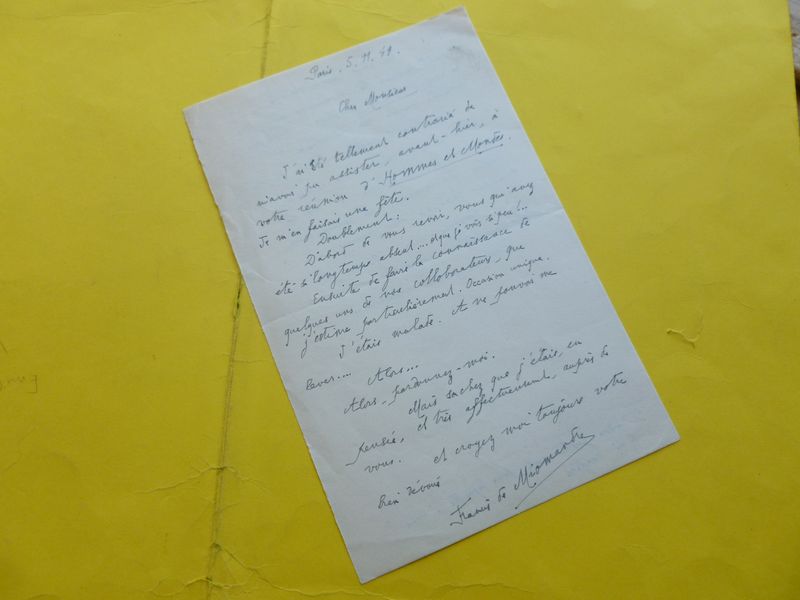 Paris, 5.11.49.
Cher Monsieur
J'ai été tellement contrarié de
n'avoir pu assister, avant-hier, à
votre réunion d'Hommes et Mondes.
Je m'en faisais une fête.
Doublement:
D'abord de vous revoir, vous qui avez
été si longtemps absent.... et que je vois si peu!..
Ensuite de faire la connaissance de
quelques uns de vos collaborateurs, que
j'estime particulièrement. Occasion unique.
J'étais malade. A ne pouvoir me
lever....
Alors...
Alors, pardonnez-moi.
Mais sachez que j'étais, en
pensée, et très affectueusement, auprès de
vous. et croyez moi toujours votre
bien dévoué
Francis de Miomandre